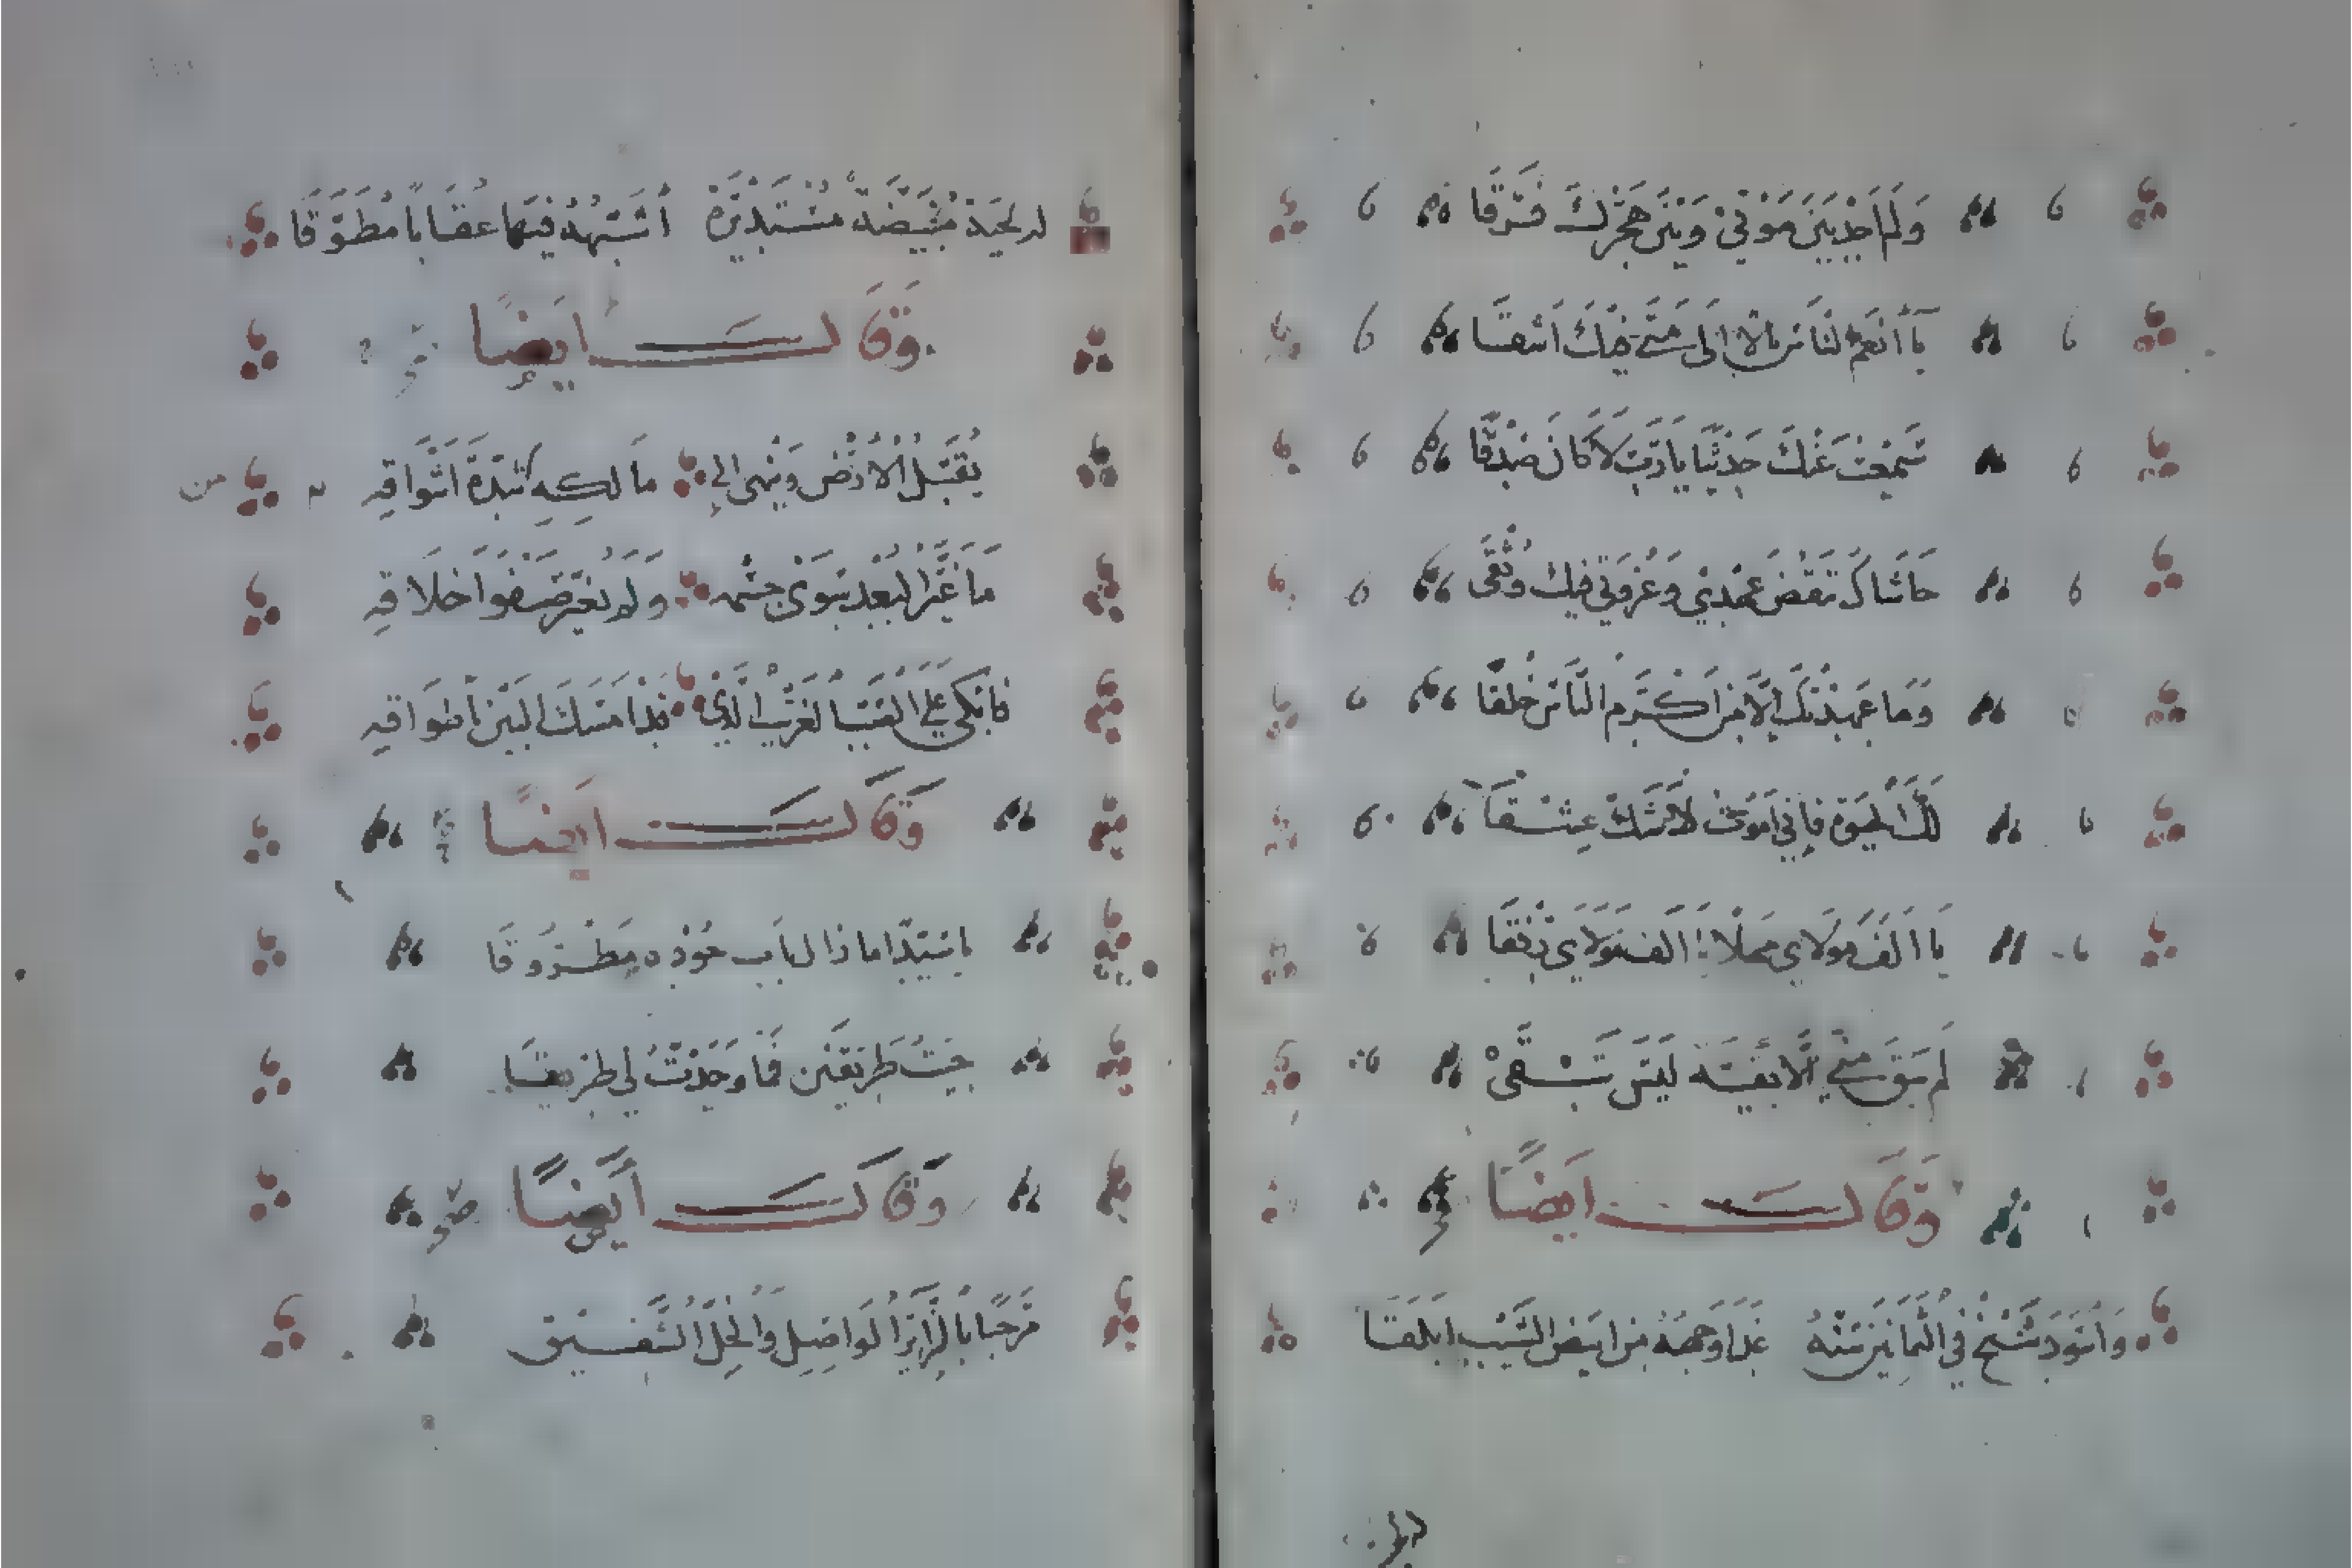 وَلَمْ اَجِدْ بَيْنَ مَوْتِيْ وَبَيْنَ هَجْرِكَ فَرْقًا
يَا أَنْعَمَ النَّاسِ بَالًا اِلَى مَتَى فِيْكَ اَشْقَا
سَمِعْتُ عَنْكَ حَدِيْثًا يَا رَبِّ لَا كَانَ صِدْقًا
حَاشَاكَ تَنْقُضُ عَهْدِيْ وَعُرْوَتِيْ فِيْكَ وُثْقَى
وَمَا عَهِدْتُكَ اِلَّا مِنْ اَكْرَمِ النَّاسِ خُلْقًا
لَكَ الْحَيوةُ فَاِنِّي اَمُوْتُ لَا شَكَّ عِشْقَا
يَا اَلْفَ مَوْلَايَ مَهْلًا يَا اَلْفَ مَوْلَايَ رِفْقَا
لَمْ يَبْقَ مِنِّي اِلَّا بَقِيَّةٌ لَيْسَ تَبْقَىْ
وَقَالَ اَيْضًا
وَاَسْوَدَ شَيْخٍ فِي الثَّمَانِيْنَ سِنُّهُ غَدَا وَجْهُهُ مِنْ اَبْيَضِ الشَّيْبِ اَبْلَقَا
له لحية
له لِحْيَةٌ مُبْيَضَّةٌ مُسْتَدِيْرَةٌ أُشَبِّهُهُ فِيْهَا عُقَابًا مُطَوَّقًا
وَقَالَ اَيْضًا
يُقَبِّلُ الْاَرْضَ وَيُنْهِى اِلَى مَالِكِهِ شِدَّةَ اَشْوَاقِهِ
مَا غَيَّرَ الْبُعْدُ سِوَىْ جِسْمِهِ وَلَمْ يُغَيِّرْ صَفْوَ اَخْلَاقِهِ
فَابْكِي عَلَى الْقَلْبِ الْغَرِيْبِ الَّذِيْ قَدْ اَمْسَكَ الْبَيْنُ بِاَطْوَاقِهِ
وَقَالَ اَيْضًا
يا سَيِّدًا ما زَالَ باب جُوْدِهِ مَطْرُوْقَا
جِيْتُ طَرِيْقَيْنِ فَمَا وَجَدْتُ لِي طَرِيْقَا
وَقَالَ اَيْضًا
مَرْحَبًا بِالزَّائِرِ الْوَاصِلِ وَالْخِلِّ الشَّفِيْقِ